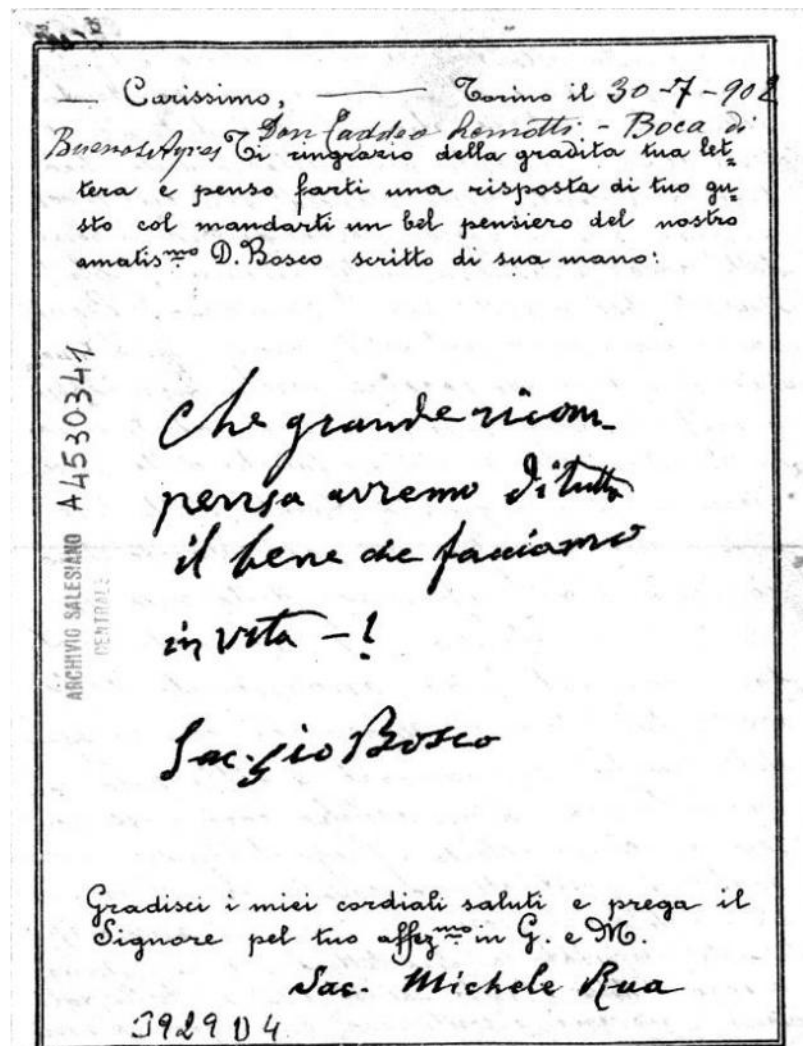 — Carissimo, — Torino il 30-7-902
Don Taddeo Remotti - Boca di
Buenos Ayres Ti ringrazio della gradita tua let=
tera e penso farti una risposta di tuo gu=
sto col mandarti un bel pensiero del nostro
amatis.mo D. Bosco scritto di sua mano:
Che grande ricom-
pensa avremo di tutto
il bene che facciamo
in vita -!
Sac. Gio Bosco
Gradisci i miei cordiali saluti e prega il
Signore pel tuo affez.mo in G. e M.
Sac. Michele Rua
3929D4
ARCHIVIO SALESIANO A4530341
CENTRALE